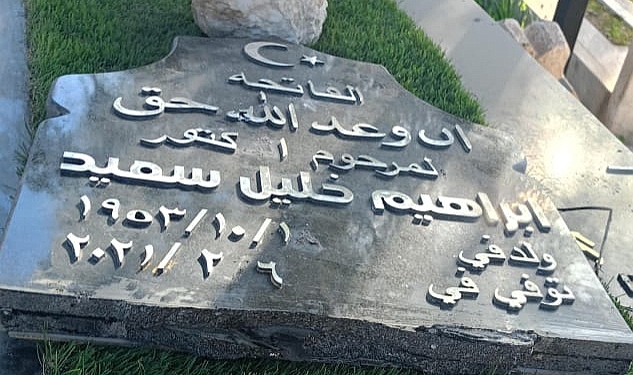 الفاتحة
ان وعد الله حق
المرحوم ا كتور
ابراهيم خليل سعيد
ولد في ١٩٥٣/١٠/١
توفي في ٢٠٢١/٢ ٦